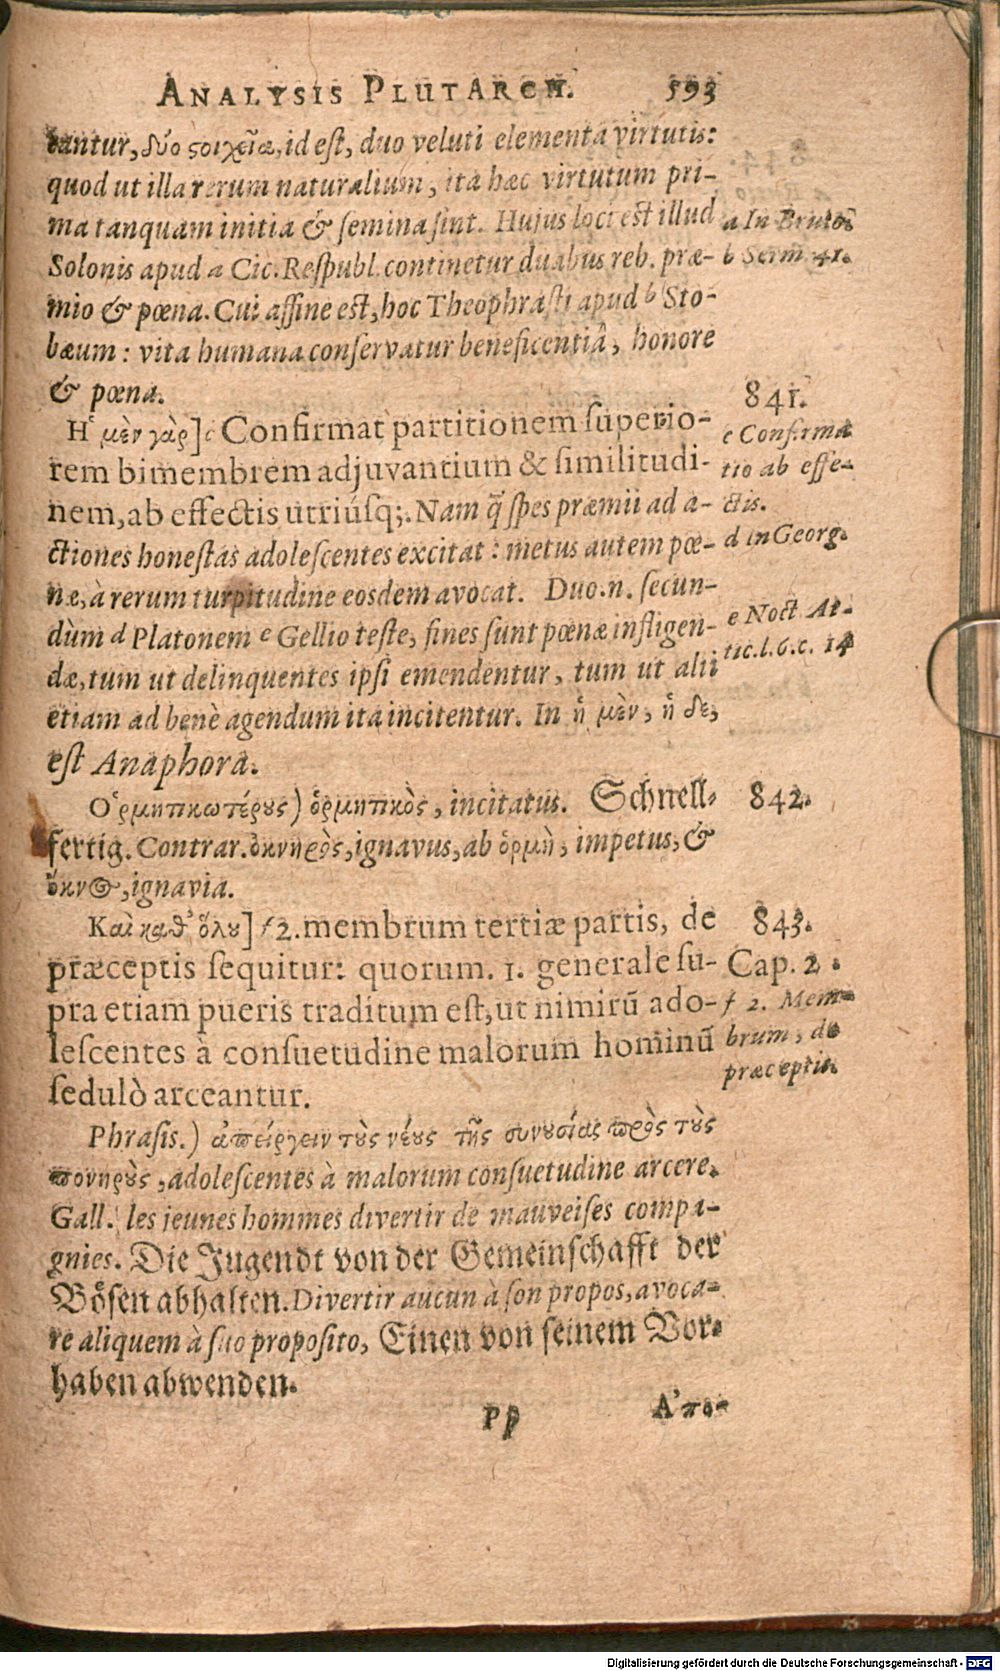 ANALYSIS PLUTARCH. 593
bantur, δύο ςοιχεῖα, id est, duo veluti elementa virtutis:
quod ut illa rerum naturalium, ita hæc virtutum pri-
ma tanquam initia & semina sint. Hujus loci est illud
a In Bruto
Solonis apud a Cic. Respubl. continetur duabus reb. præ-
b Serm. 41.
mio & pœna. Cui affine est, hoc Theophrasti apud b Sto-
bæum: vita humana conservatur beneficentiâ, honore
& pœna.
841.
Ἡ μὲν γὰρ] c Confirmat partitionem superio-
c Confirma
rem bimembrem adjuvantium & similitudi-
tio ab effe-
nem, ab effectis utriúsq;. Nam q̃ spes præmii ad a-
ctis.
ctiones honestas adolescentes excitat: metus autem pœ-
d in Georg.
næ, à rerum turpitudine eosdem avocat. Duo.n. secun-
dùm d Platonem e Gellio teste, fines sunt pœnæ infligen-
e Noct. At-
tic. l. 6. c. 14
dæ, tum ut delinquentes ipsi emendentur, tum ut alii
etiam ad benè agendum ita incitentur. In ἡ μὲν, ἡ δε,
est Anaphora.
Ὁρμητικωτέρους) ὁρμητικὸς, incitatus. Schnell-
842.
fertig. Contrar. ὀκνηρὸς, ignavus, ab ὁρμὴ, impetus, &
ὄκνος, ignavia.
Καὶ καθ᾽ ὅλου] f 2. membrum tertiæ partis, de
843.
præceptis sequitur: quorum. 1. generale su-
Cap. 2.
pra etiam pueris traditum est, ut nimirũ ado-
f 2. Mem-
lescentes à consuetudine malorum hominũ
brum, de
sedulò arceantur.
præceptis.
Phrasis.) ἀπείργειν τοὺς νέους τῆς συνουσίας πρὸς τοὺς
πονηροὺς, adolescentes à malorum consuetudine arcere.
Gall. les jeunes hommes divertir de mauveises compa-
gnies. Die Jugendt von der Gemeinschafft der
Bösen abhalten. Divertir aucun à son propos, avoca-
re aliquem à suo proposito, Einen von seinem Vor-
haben abwenden.
Pp Ἀπο-
Digitalisierung gefördert durch die Deutsche Forschungsgemeinschaft - DFG